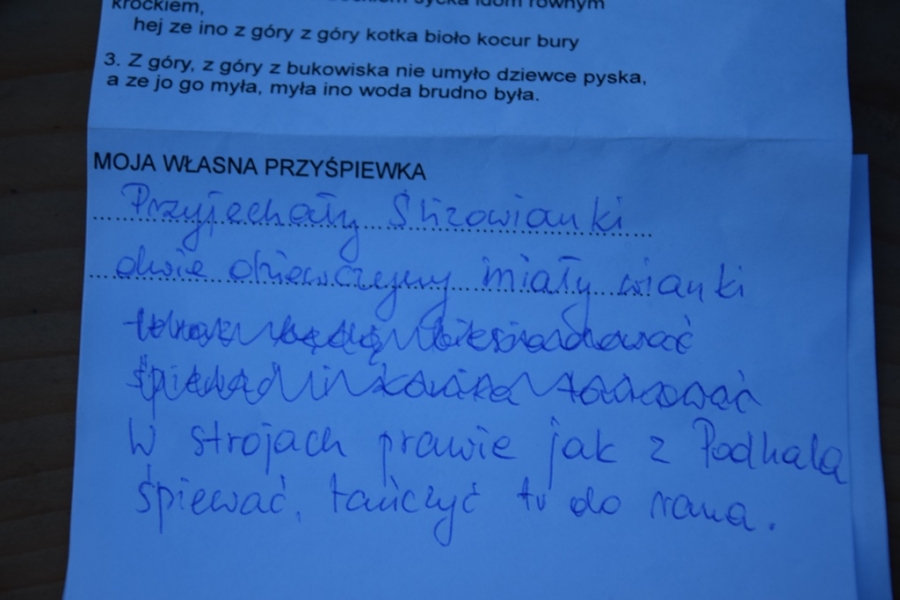 krockiem,
równym
hej ze ino z góry z góry kotka bioło kocur bury
3. Z góry, z góry z bukowiska nie umyło dziewce pyska,
a ze jo go myła, myła ino woda brudno była.
MOJA WŁASNA PRZYŚPIEWKA
Przyjechały
dwie dziewczyny miały wianki
będą biesiadować
śpiewać i tańcować
W strojach prawie jak z Podhala
śpiewać, tańczyć tu do rana.